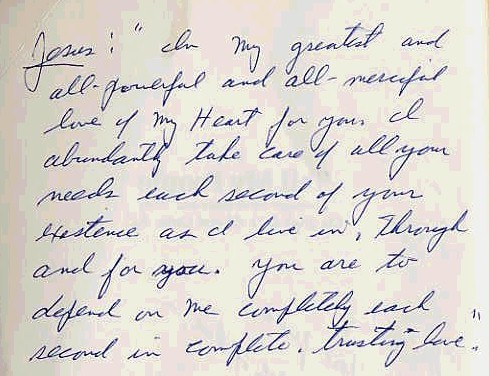 Jesus: "In my greatest and
all-powerful and all-merciful
love of my Heart for you I
abundantly take care of all your
needs each second of your
existence as I live in, through
and for you. You are to
depend on me completely each
second in complete, trusting love."